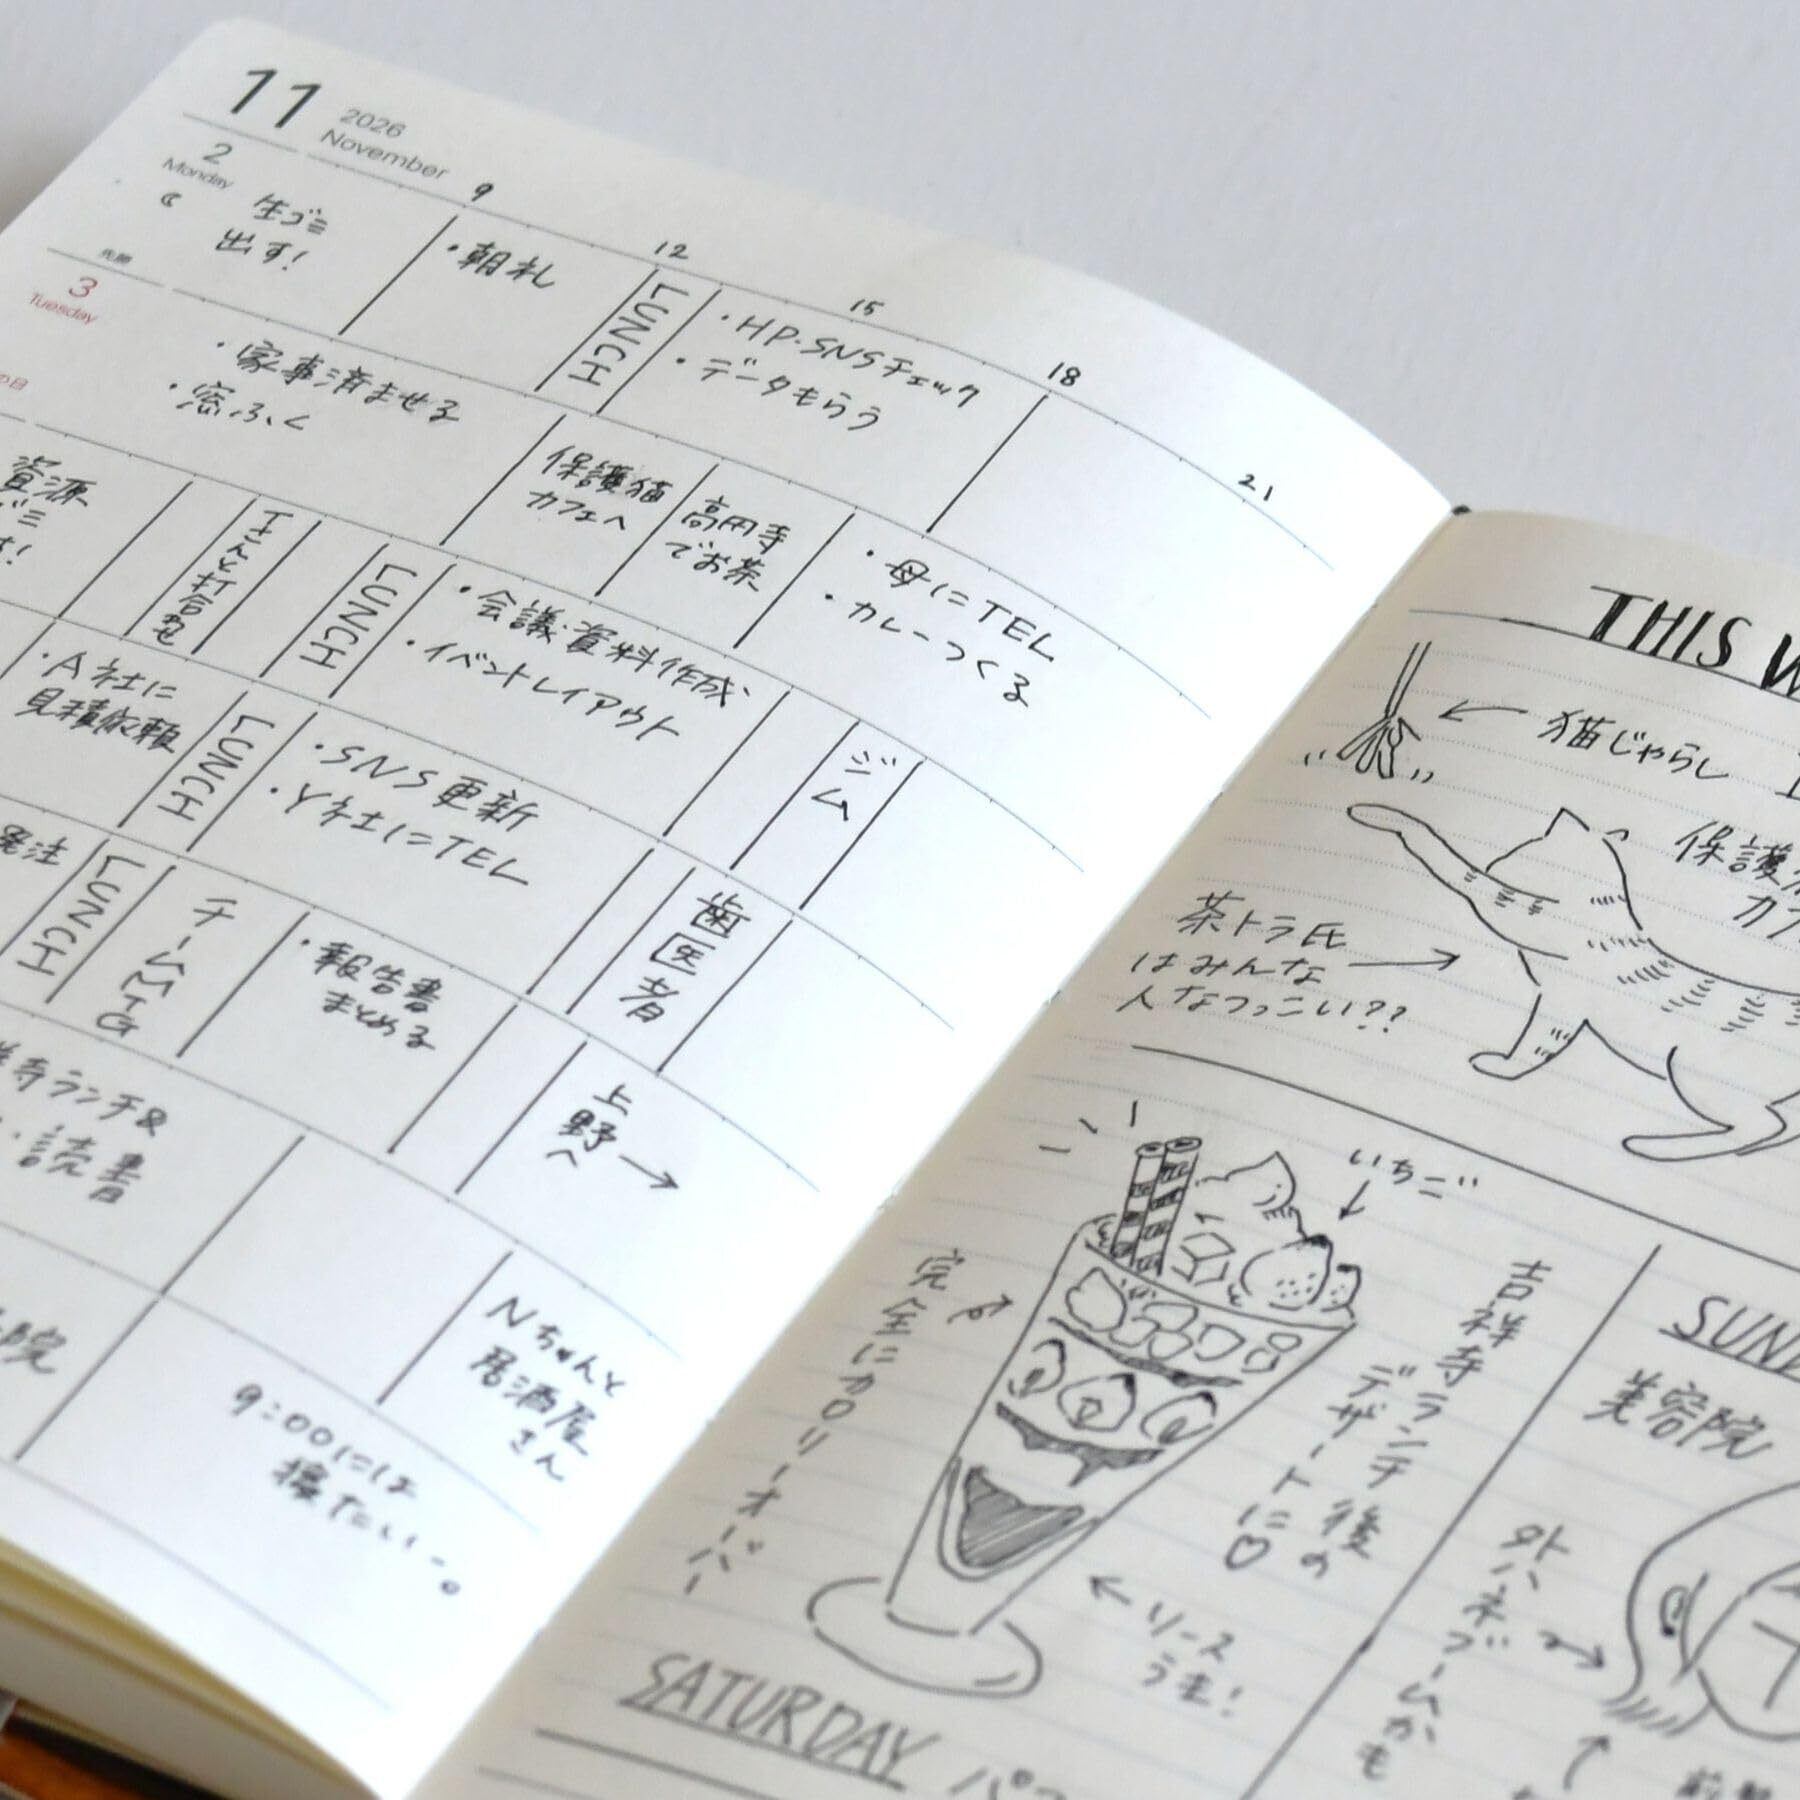 11
2026
November
9
12
15
18
21
2
Monday
生ゴミ
出す!
・朝礼
LUNCH
・HP・SNSチェック
・データもらう
先勝
3
Tuesday
の日
・家事済ませる
・窓ふく
保護猫
カフェへ
高円寺
でお茶
・母にTEL
・カレーつくる
資源
ゴミ
Tさんと打合せ
LUNCH
・会議資料作成
・イベントレイアウト
ジム
・A社に
見積依頼
LUNCH
・SNS更新
・Y社にTEL
歯医者
発注
LUNCH
チームMTG
・報告書
まとめる
上野へ→
寺ランチ&
・読書
Nちゃんと
居酒屋
さん
院
9:00には
寝たい〜。
THIS W
←猫じゃらし
保護
カフ
茶トラ氏
はみんな
人なつっこい??
いちご
吉祥寺ランチ後の
デザートに♡
完全にカロリーオーバー
←ソース
うま!
SATURDAY
パフ
SUND
美容院
外ハネブームかも